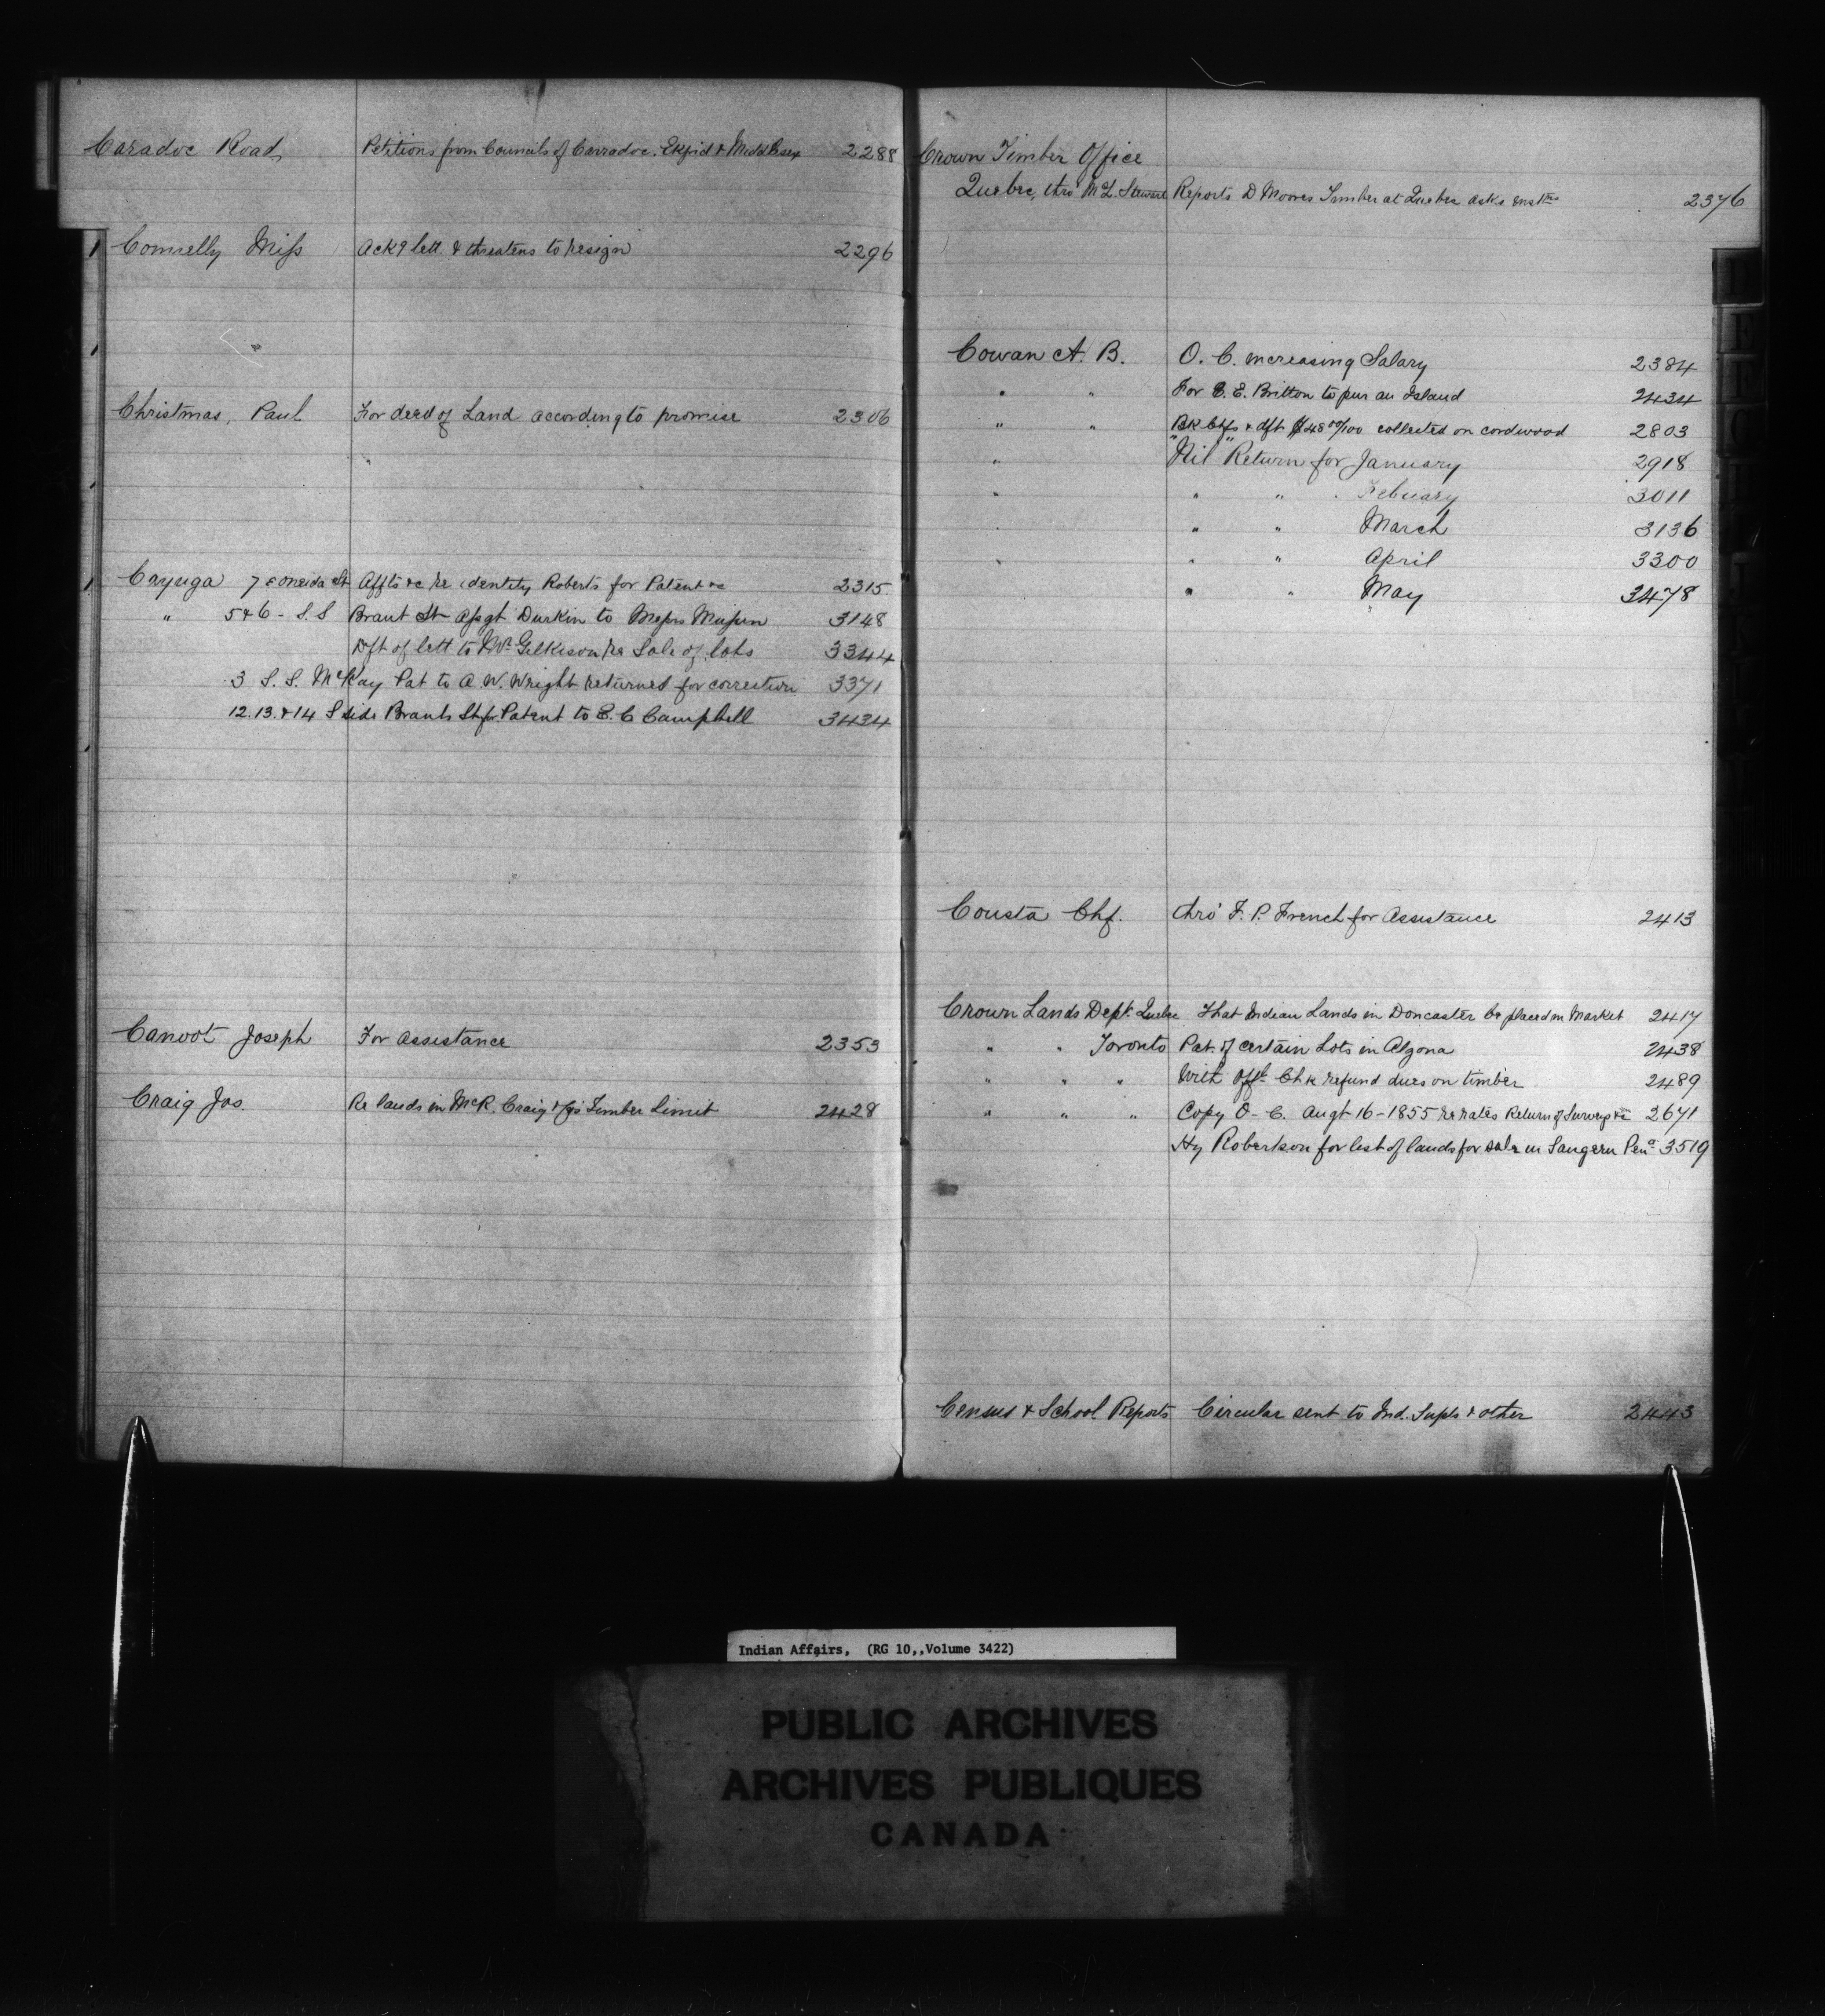 Caradoc Road Petitions from Councils of Carradoc. Ekfrid & Middlesex 2288
Connelly Miss Ackg lett. & threatens to resign 2296
Christmas, Paul For deed of Land according to promise 2306
Cayuga 7 E Oneida St Affts &c re identity Roberts for Patent &c 2315
" 5 & 6 - S. S Brant St Assgt Durkin to Messrs 3148
Dft of lett to Mr Gilkison re Sale of lots 3344
3 S. S. McKay Pat to A W. Wright returned for correction 3371
12. 13. & 14 S side Brant St for Patent to E. C Campbell 3434
Canoot Joseph For assistance 2353
Craig Jos. Re lands in McR. Craig & Timber Limit 2428
Crown Timber Office
Quebec, thro' McL. Stewart Reports D Moores Timber at Quebec asks instns 2376
Cowan A. B. O. C. increasing Salary 2384
" " For C. E. Britton to pur an Island 2434
" " Bk Ctfs & dft $48 00/100 collected on cordwood 2803
" "Nil" Return for January 2918
" " " Febuary 3011
" " " March 3136
" " " April 3300
" " " May 3478
Cousta Chf. thro' F. P. French for Assistance 2413
Crown Lands Dept. Quebec That Indian Lands in Doncaster be placed in Market 2417
" " Toronto Pat. of certain Lots in Algona 2438
" " " With Offl. Chk refund dues on timber 2489
" " " Copy O- C. Augt 16 - 1855 re rates Return of Surveys &c 2671
Hy Robertson for list of lands for sale in Saugeen Pena 3519
Census & School Reports Circular sent to Ind. Supts & other 2443
Indian Affairs, (RG 10,,Volume 3422)
PUBLIC ARCHIVES
ARCHIVES PUBLIQUES
CANADA